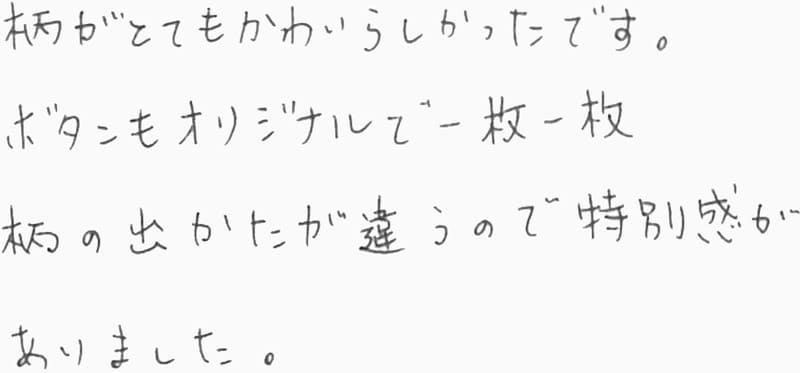 柄がとてもかわいらしかったです。
ボタンもオリジナルで一枚一枚
柄の出かたが違うので特別感が
ありました。